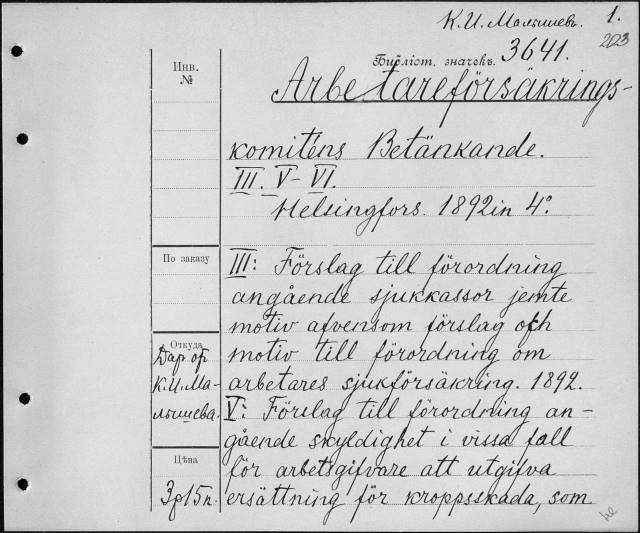 К.И.Малышевъ. 1.
203
Библіот. значекъ. 3641.
Инв.
№
Arbetareförsäkrings-
komiténs Betänkande.
III. V-VI.
Helsingfors. 1892 in 4°.
По заказу
III: Förslag till förordning
angående sjukkassor jemte
motiv afvensom förslag och
Откуда
motiv till förordning om
Дар от
К.И.Ма-
лышева.
arbetares sjukförsäkring. 1892.
V: Förslag till förordning an-
gående skyldighet i vissa fall
Цѣна
för arbetsgifvare att utgifva
3р15к.
ersättning för kroppsskada, som